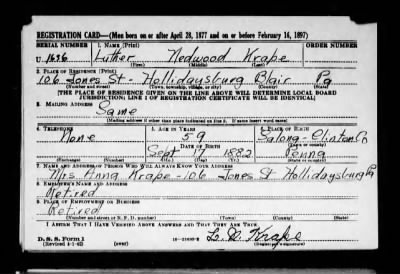 REGISTRATION CARD—(Men born on or after April 28, 1877 and on or before February 16, 1897)
SERIAL NUMBER 1. NAME (Print) ORDER NUMBER
U 1636 Luther Nedwood Krape
(First) (Middle) (Last)
2. PLACE OF RESIDENCE (Print)
106 Jones St - Hollidaysburg Blair Pa
(Number and street) (Town, township, village, or city) (County) (State)
[THE PLACE OF RESIDENCE GIVEN ON THE LINE ABOVE WILL DETERMINE LOCAL BOARD
JURISDICTION; LINE 2 OF REGISTRATION CERTIFICATE WILL BE IDENTICAL]
3. MAILING ADDRESS
Same
[Mailing address if other than place indicated on line 2. If same insert word same]
4. TELEPHONE 5. AGE IN YEARS 6. PLACE OF BIRTH
None 59 Salona-Clinton Co
DATE OF BIRTH (Town or county)
Sept 17 1882 Penna
(Exchange) (Number) (Mo.) (Day) (Yr.) (State or country)
7. NAME AND ADDRESS OF PERSON WHO WILL ALWAYS KNOW YOUR ADDRESS
Mrs. Anna Krape - 106 Jones St Hollidaysburg Pa
8. EMPLOYER'S NAME AND ADDRESS
Retired
9. PLACE OF EMPLOYMENT OR BUSINESS
Retired
(Number and street or R. F. D. number) (Town) (County) (State)
I AFFIRM THAT I HAVE VERIFIED ABOVE ANSWERS AND THAT THEY ARE TRUE.
D. S. S. Form 1
(Revised 4-1-42) (over) L. N. Krape
(Registrant's signature)